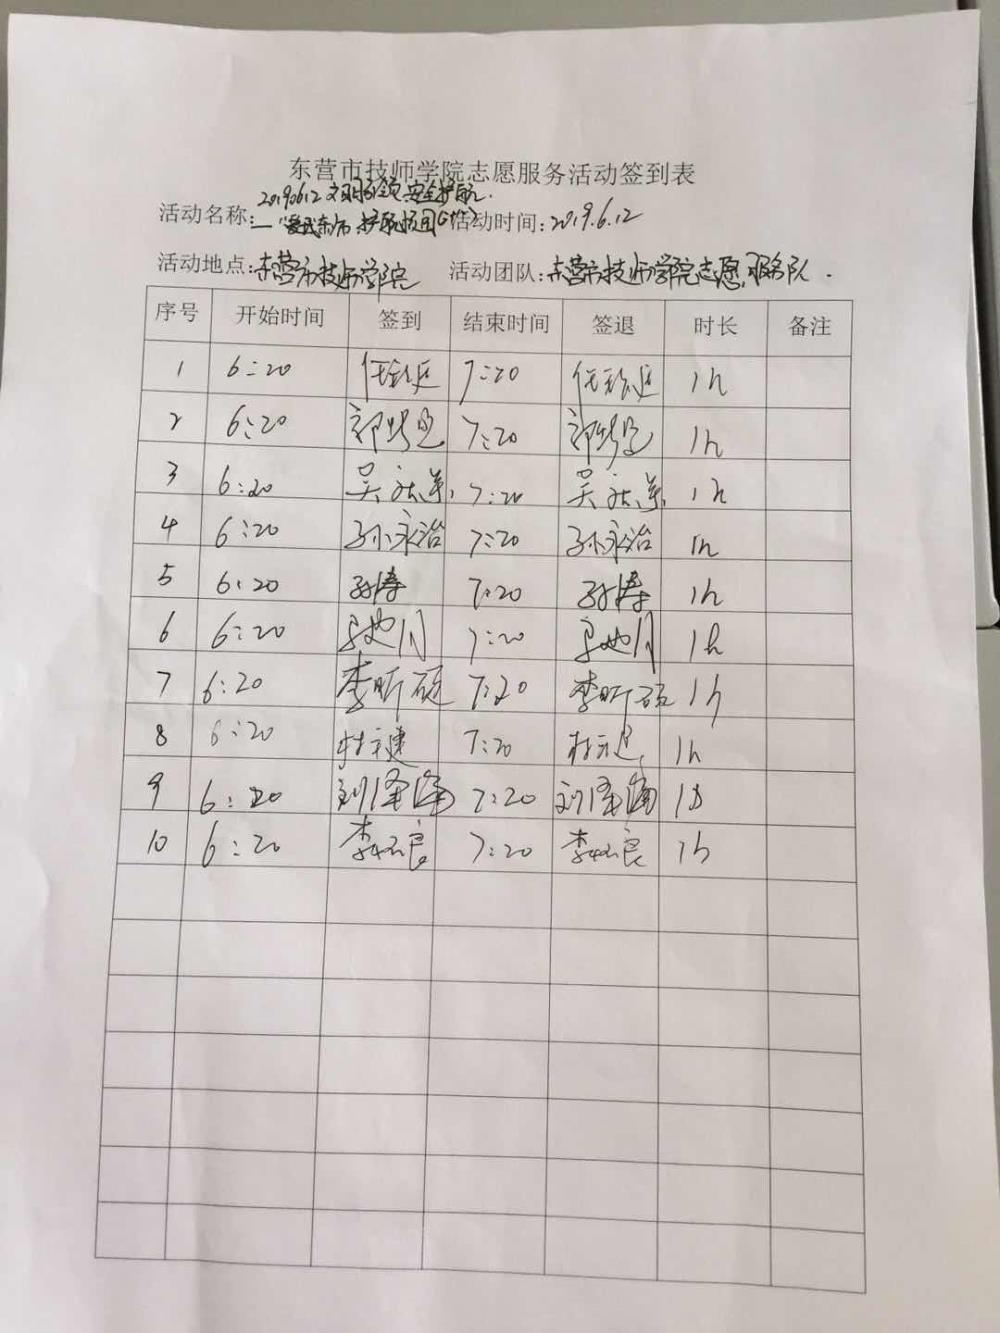 东营市技师学院志愿服务活动签到表
20190612 文明引领 安全护航
活动名称: 护航校园 活动时间: 2019.6.12
活动地点: 东营市技师学院 活动团队: 东营市技师学院志愿服务队.
序号 开始时间 签到 结束时间 签退 时长 备注
1 6:20 7:20 1h
2 6:20 郭 7:20 郭 1h
3 6:20 吴 7:20 吴 1h
4 6:20 孙永治 7:20 孙永治 1h
5 6:20 孙涛 7:20 孙涛 1h
6 6:20 7:20 1h
7 6:20 李昕硕 7:20 李昕硕 1h
8 6:20 杜 7:20 杜 1h
9 6:20 刘泽 7:20 刘泽 1h
10 6:20 李 良 7:20 李 良 1h